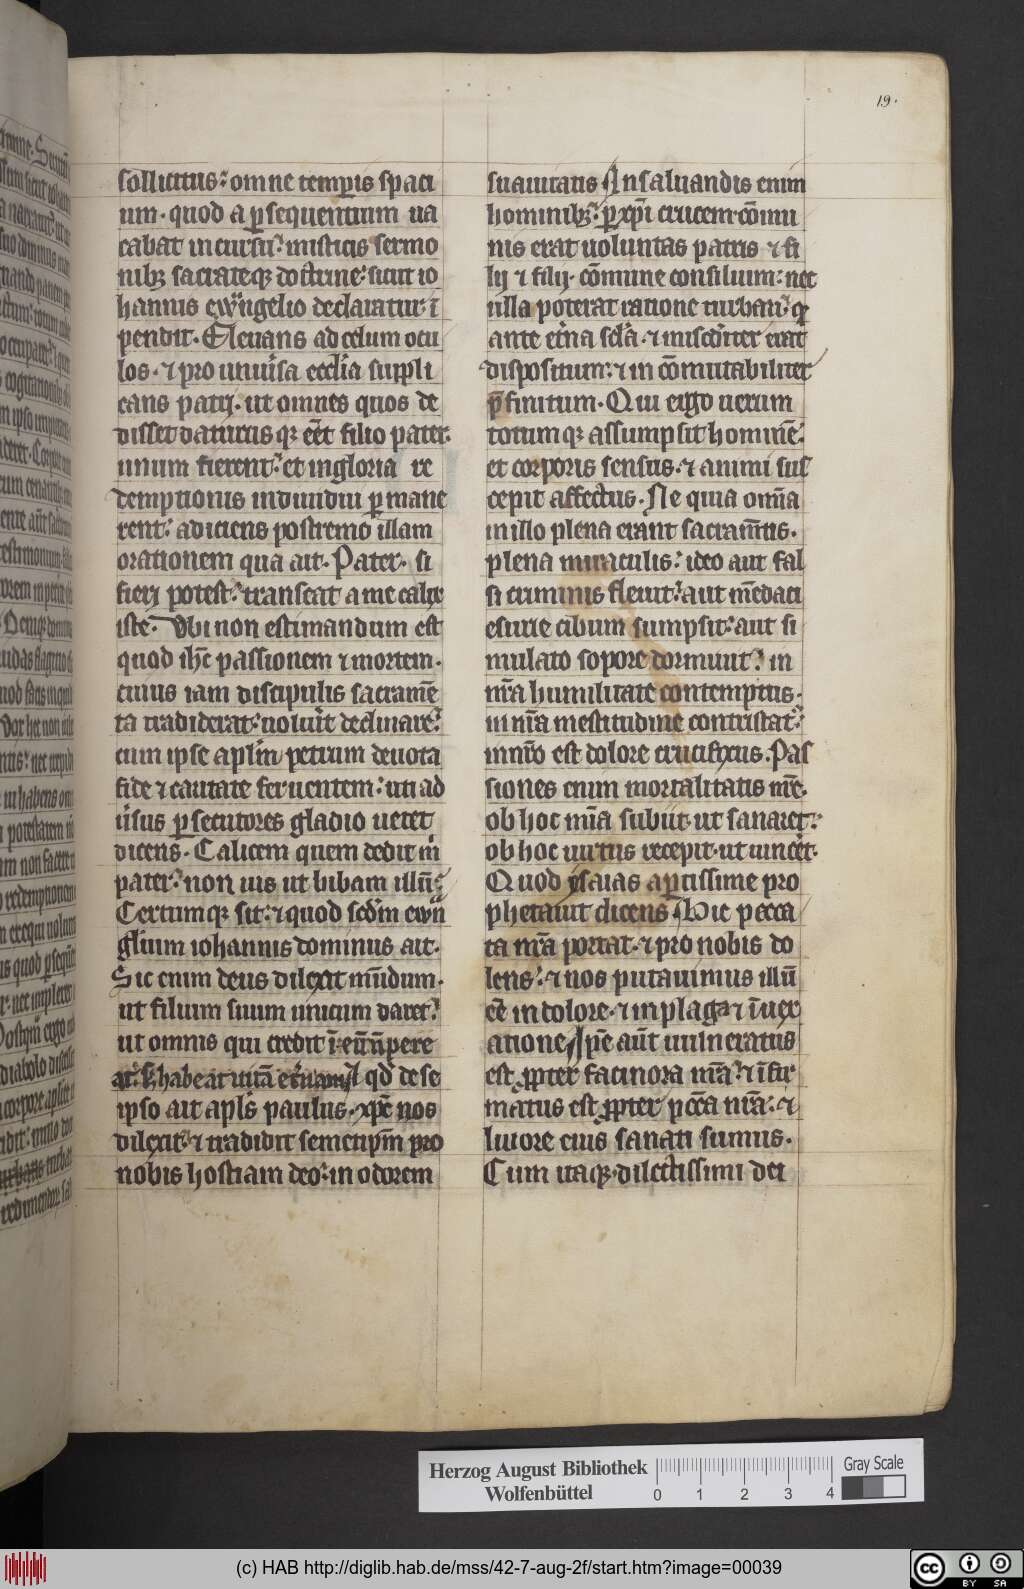 19.
sollicitus: omne temꝑis spaci
um. quod a ꝑsequentium ua
cabat incursu: misticis sermo
nibꝫ sacrateqꝫ doctrine: sicut io
hannis ewūgelio declaratur: ī
pendit. Eleuans ad celum ocu
los. ⁊ pro uniūsa ecclīa suppli
cans patrj. ut omnes quos de
disset daturus qꝫ eēt filio pater.
unum fierent: et in gloria re
demptionis indiuidui ꝑ mane
rent: adiciens postremo illam
orationem qua ait. Pater. si
fieri potest: transeat a me calix
iste. Vbi non estimandum est
quod ihc̄ passionem ⁊ mortem.
cuius iam discipulis sacramē
ta tradiderat: uolūit declinare:
cum ipse aplm̄ petrum deuota
fide ⁊ caritate feruentem: uti ad
ūsus ꝑsecutores gladio uetet
dicens. Calicem quem dedit m̄
pater: non uis ut bibam illū:
Certumqꝫ sit: ⁊ quod scd̄m ewū
glium iohannis dominus ait.
Sic enim deus dilexit mūdum.
ut filium suum unicum daret:
ut omnis qui credit ī eū n̄ pere
at: s; habeat uitā et̄nam. Et qd̄ de se
ipso ait apls̄ paulus. xpc̄ nos
dilexit: ⁊ tradidit semetipm̄ pro
nobis hostiam deo: in odorem
suauitatis In saluandis enim
hominibꝫ: ꝑ xpi crucem cōmu
nis erat uoluntas patris ⁊ fi
lij ⁊ filij. cōmune consilium: nec
ulla poterat ratione turbari: qꝫ
ante et̄na scl̄a. ⁊ misc̄orditer erat
dispositum: ⁊ in cōmutabiliter
p̄finitum. Qui ergo uerum
totumqꝫ assumpsit hominē:
et corporis sensus. ⁊ animi sus
cepit affectus. Ne quia omīa
in illo plena erant sacram̄tis.
plena miraculis: ideo aut fal
si criminis fleuit: aut mēdaci
esurie cibum sumpsit: aut si
mulato sopore dormiuit: in
nr̄a humilitate contemptus.
in nr̄a mestitudine contristat9:
in nr̄o est dolore crucifixus. Pas
siones enim mortalitatis nr̄e.
ob hoc mīa subiit. ut sanaret:
ob hoc uirtus recepit. ut uincet̄.
Quod ysaias aꝑtissime pro
phetauit dicens Hic pecca
ta nr̄a portat. ⁊ pro nobis do
lens: ⁊ nos putauimus illū
eē in dolore. ⁊ in plaga ⁊ ī uex
atione Ip̄e aūt uulneratus
est ꝓpter facinora nr̄a: ⁊ īfir
matus est ꝓpter pc̄ca nr̄a: ⁊
liuore eius sanati sumus.
Cum itaqꝫ dilectissimi dei
Herzog August Bibliothek
Wolfenbüttel
0 1 2 3 4
Gray Scale
(c) HAB http://diglib.hab.de/mss/42-7-aug-2f/start.htm?image=00039
cc BY SA